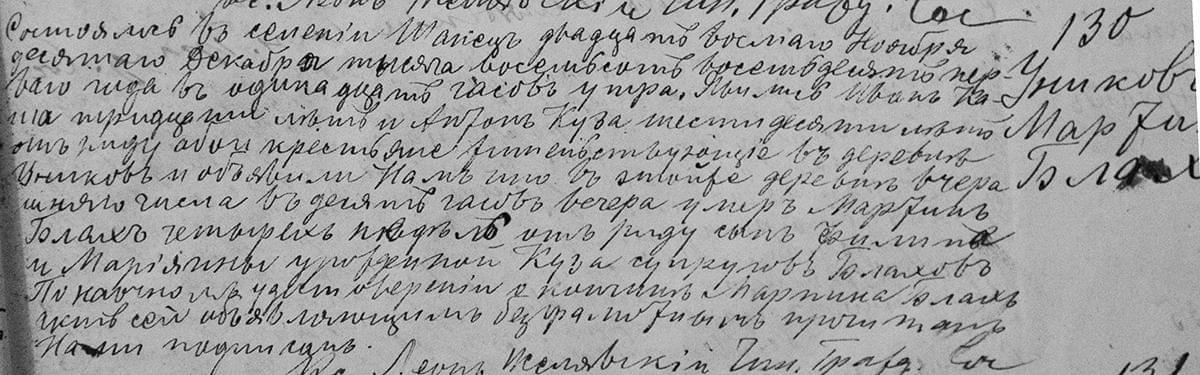 Кс. Леонъ Желявскій Чин. Гражд. Сос
130
Состоялось въ селеніи двадцать восьмаго Ноября
десятаго Декабря тысяча восемьсотъ восемьдесятъ пер-
ваго года въ одинадцать часовъ утра. Явились Иванъ Ка-
тридцати лѣтъ и Антонъ Куза шестидесяти лѣтъ
отъ роду обои крестьяне жительствующіе въ деревнѣ
Униковъ и объявили Намъ что въ деревнѣ вчера
шняго числа въ десять часовъ вечера умеръ Мартинъ
Блахъ четырехъ недѣль отъ роду сынъ
и Маріянны урожденной Куза супруговъ Блаховъ
По удостовереніи о кончинѣ Мартина Блахъ
актъ сей объявляющимъ безграмотнымъ прочитанъ
Нами подписанъ.
Униковъ
Мартин
Блах
Кс. Леонъ Желявскій Чин. Гражд. Сос
131